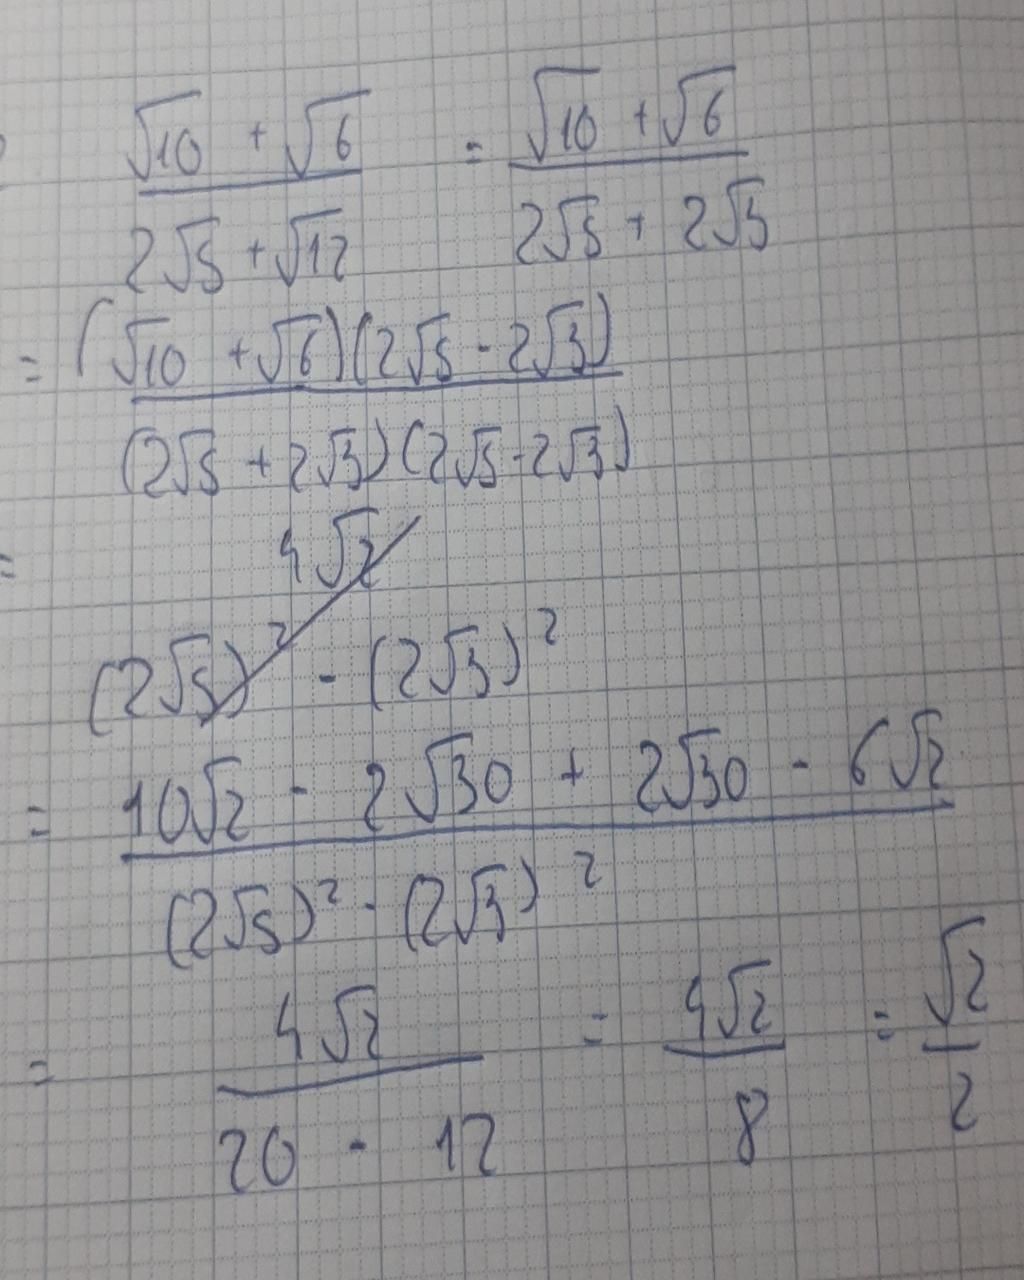 √10 + √6 = √10 + √6
2√5 + √12 2√5 + 2√3
= (√10 + √6)(2√5 - 2√3)
(2√5 + 2√3)(2√5 - 2√3)
= 4√2
(2√5)² - (2√3)²
= 10√2 - 2√30 + 2√30 - 6√2
(2√5)² - (2√3)²
= 4√2 = 4√2 = √2
20 - 12 8 2